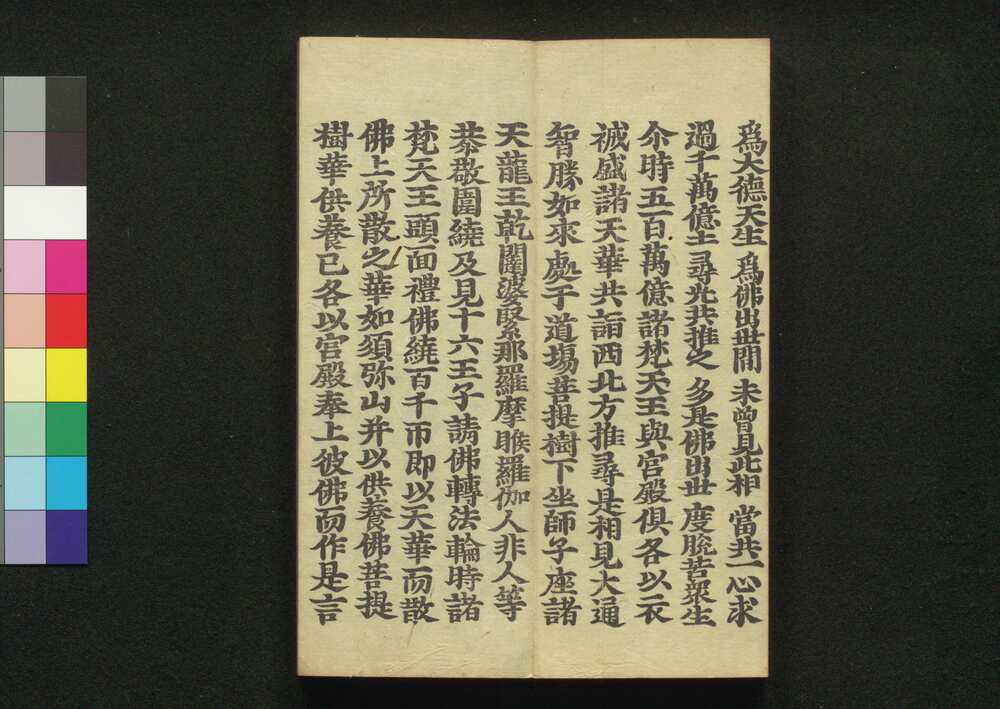 爲大德天生 爲佛出世間 未曾見此相 當共一心求
過千萬億土 尋光共推之 多是佛出世 度脫苦衆生
尒時五百萬億諸梵天王與宮殿俱各以衣
裓盛諸天華共詣西北方推尋是相見大通
智勝如來處于道場菩提樹下坐師子座諸
天龍王乾闥婆緊那羅摩睺羅伽人非人等
恭敬圍繞及見十六王子請佛轉法輪時諸
梵天王頭面禮佛繞百千帀即以天華而散
佛上所散之華如須弥山并以供養佛菩提
樹華供養已各以宮殿奉上彼佛而作是言